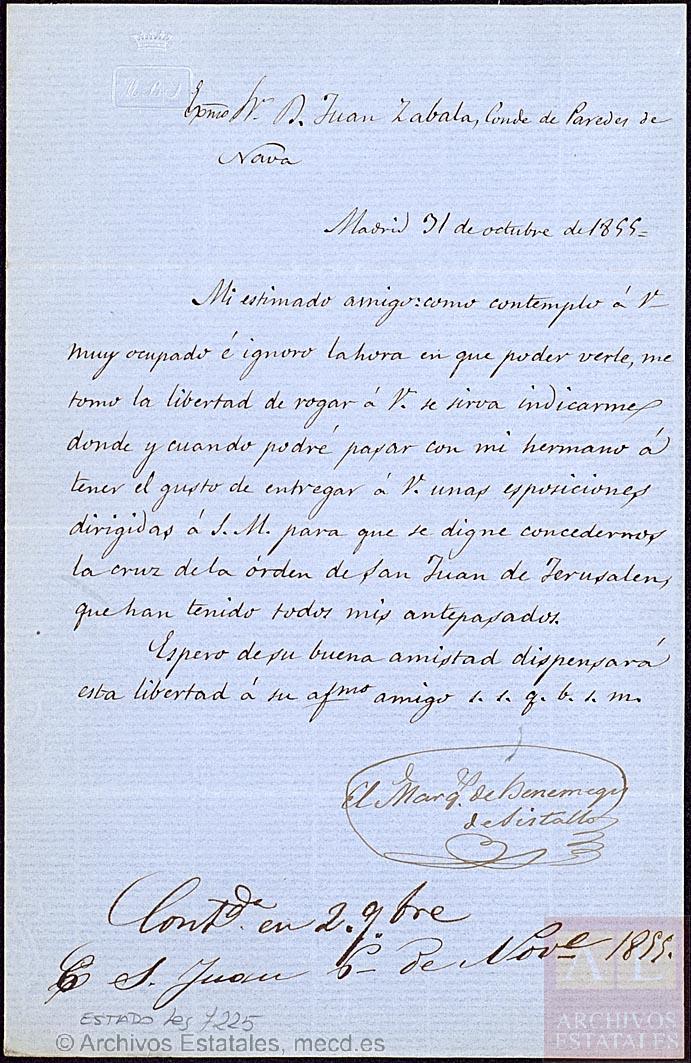 M B S
Exmo Sr. D. Juan Zabala, Conde de Paredes de
Nava
Madrid 31 de octubre de 1855=
Mi estimado amigo: como contemplo á V.
muy ocupado é ignoro la hora en que poder verle, me
tomo la libertad de rogar á V. se sirva indicarme
donde y cuando podré pasar con mi hermano á
tener el gusto de entregar á V. unas esposiciones
dirigidas á S. M. para que se digne concedernos
la cruz de la órden de San Juan de Jerusalen,
que han tenido todos mis antepasados.
Espero de su buena amistad dispensará
esta libertad á su afmo amigo s. s. q. b. s. m.
El Marqs. de Benemegis
de Sistallo
Contda. en 2. 9bre
S. Juan de Nove 1855.
ESTADO Leg 7225
© Archivos Estatales, mecd.es
AE
ARCHIVOS
ESTATALES